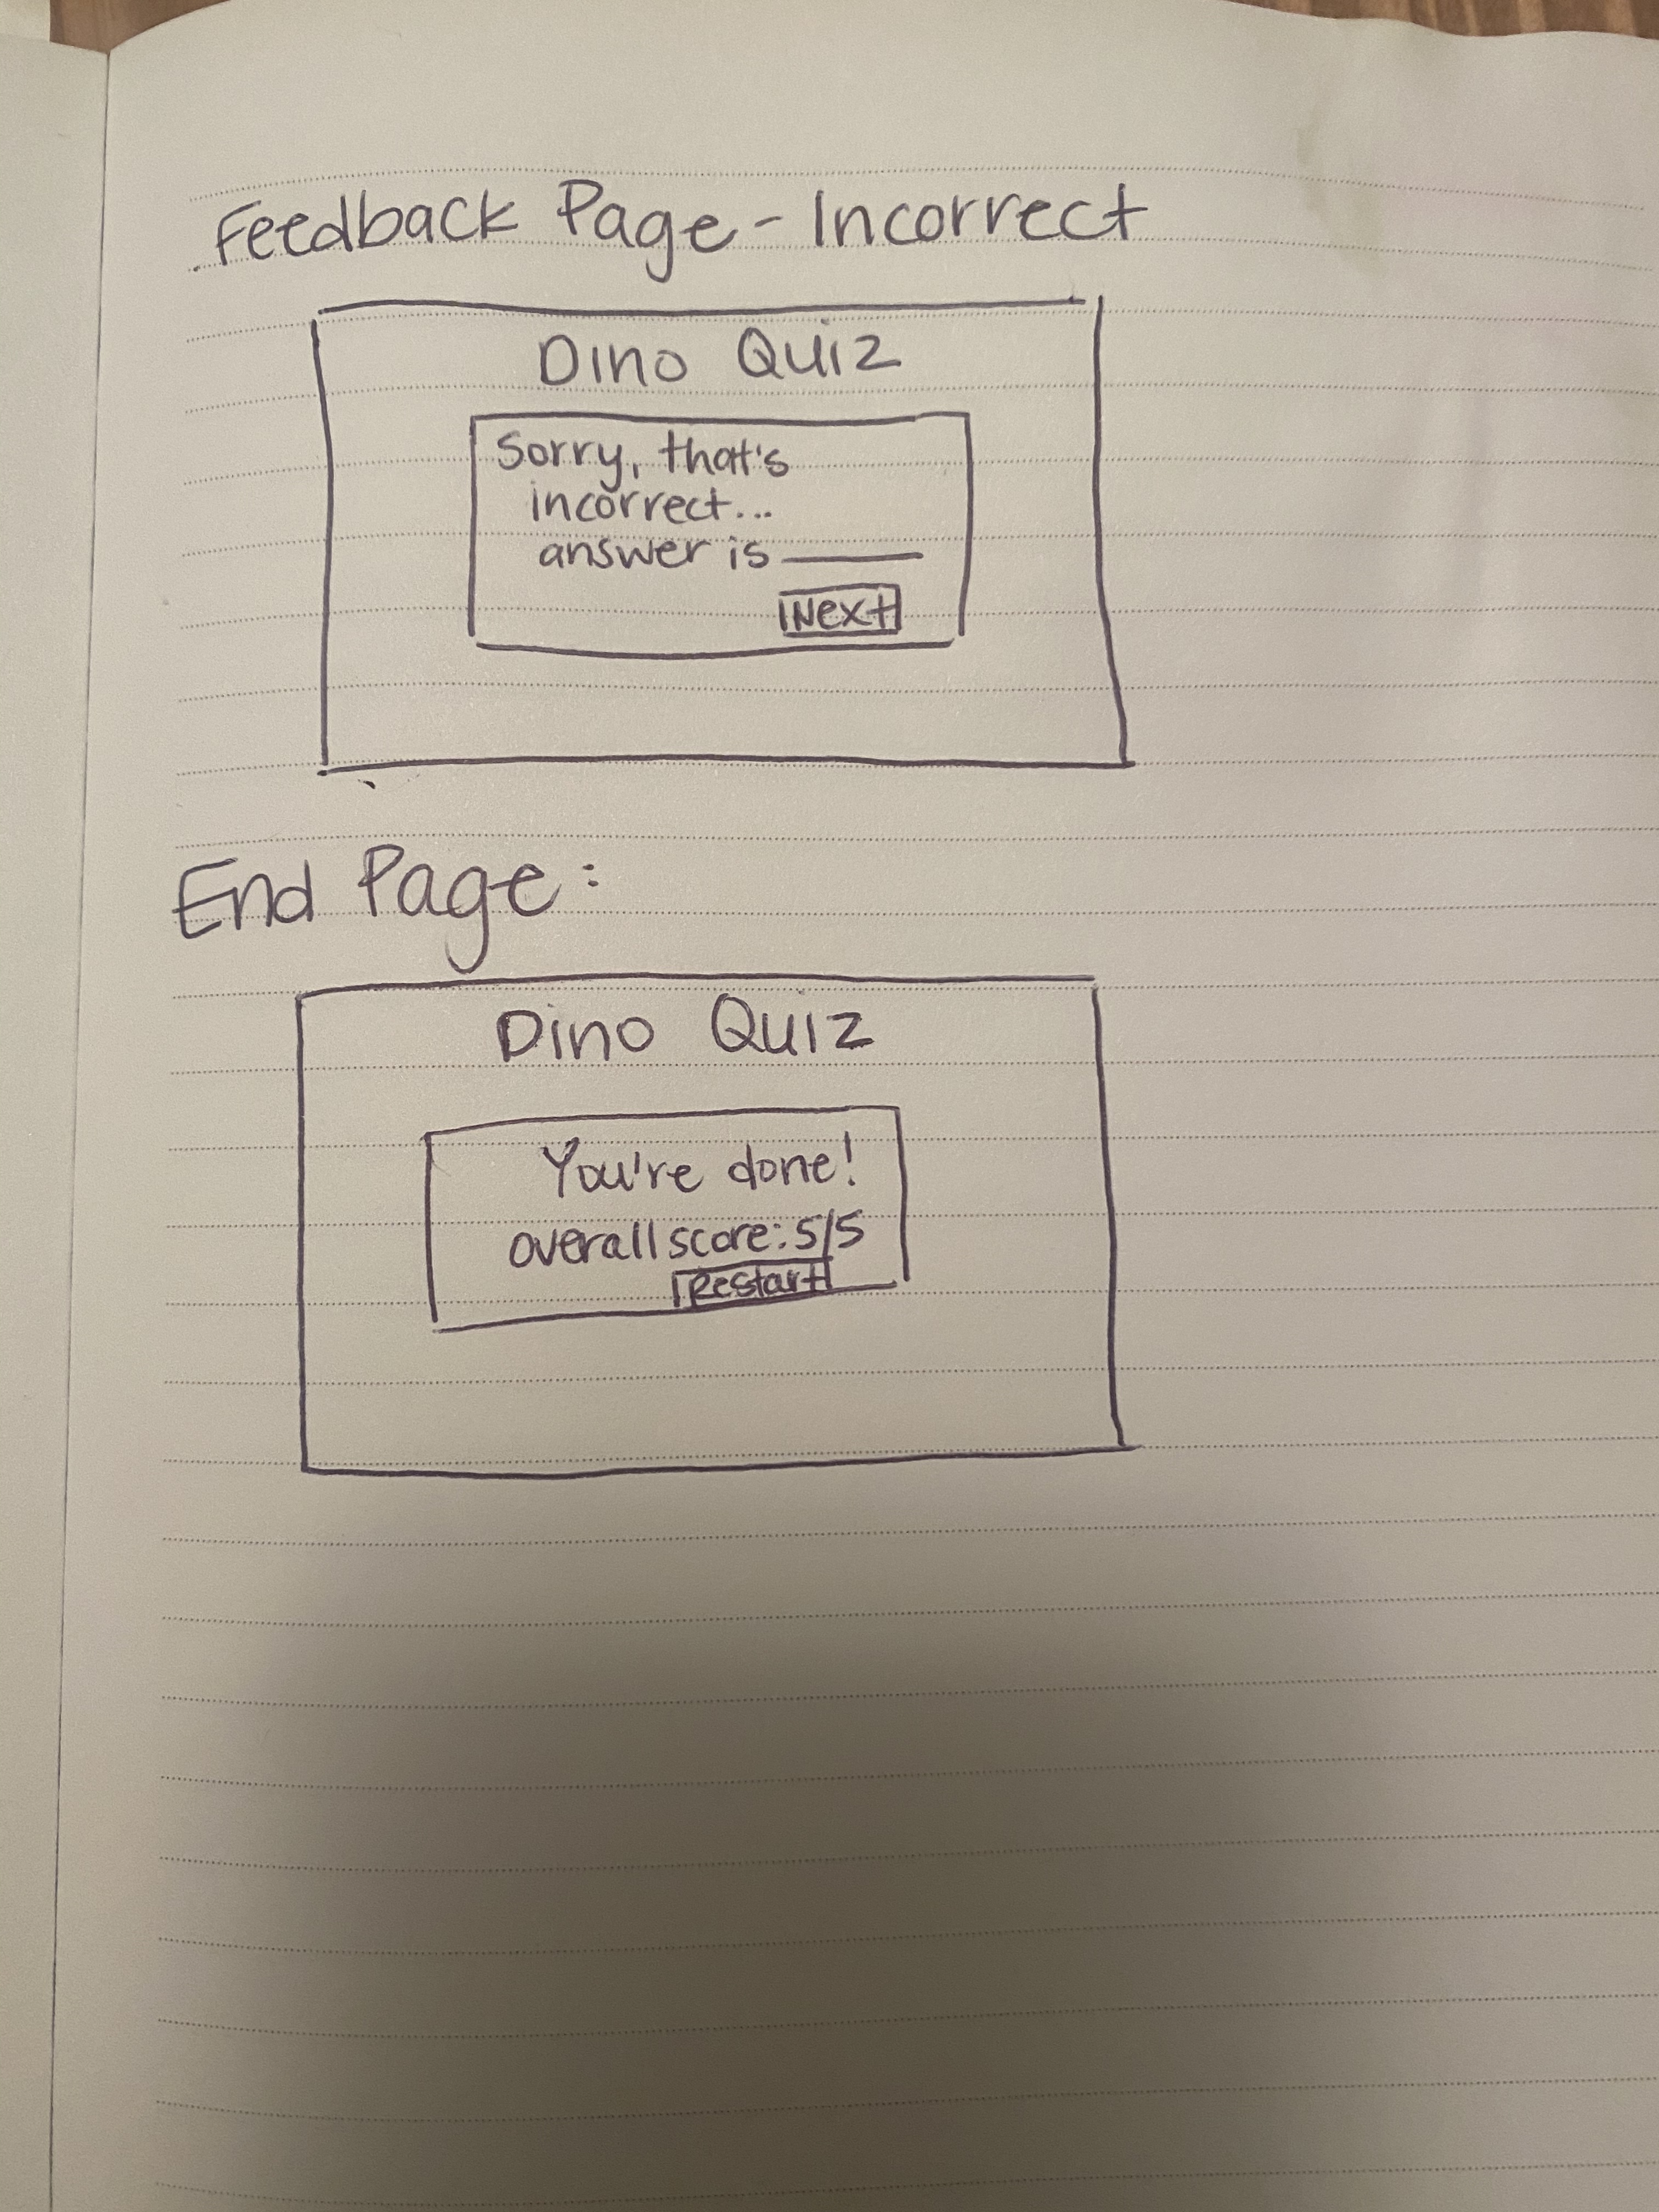 Feedback Page - Incorrect
Dino Quiz
Sorry, that's
incorrect...
answer is ______
Next
End Page:
Dino Quiz
You're done!
overall score: 5/5
Restart